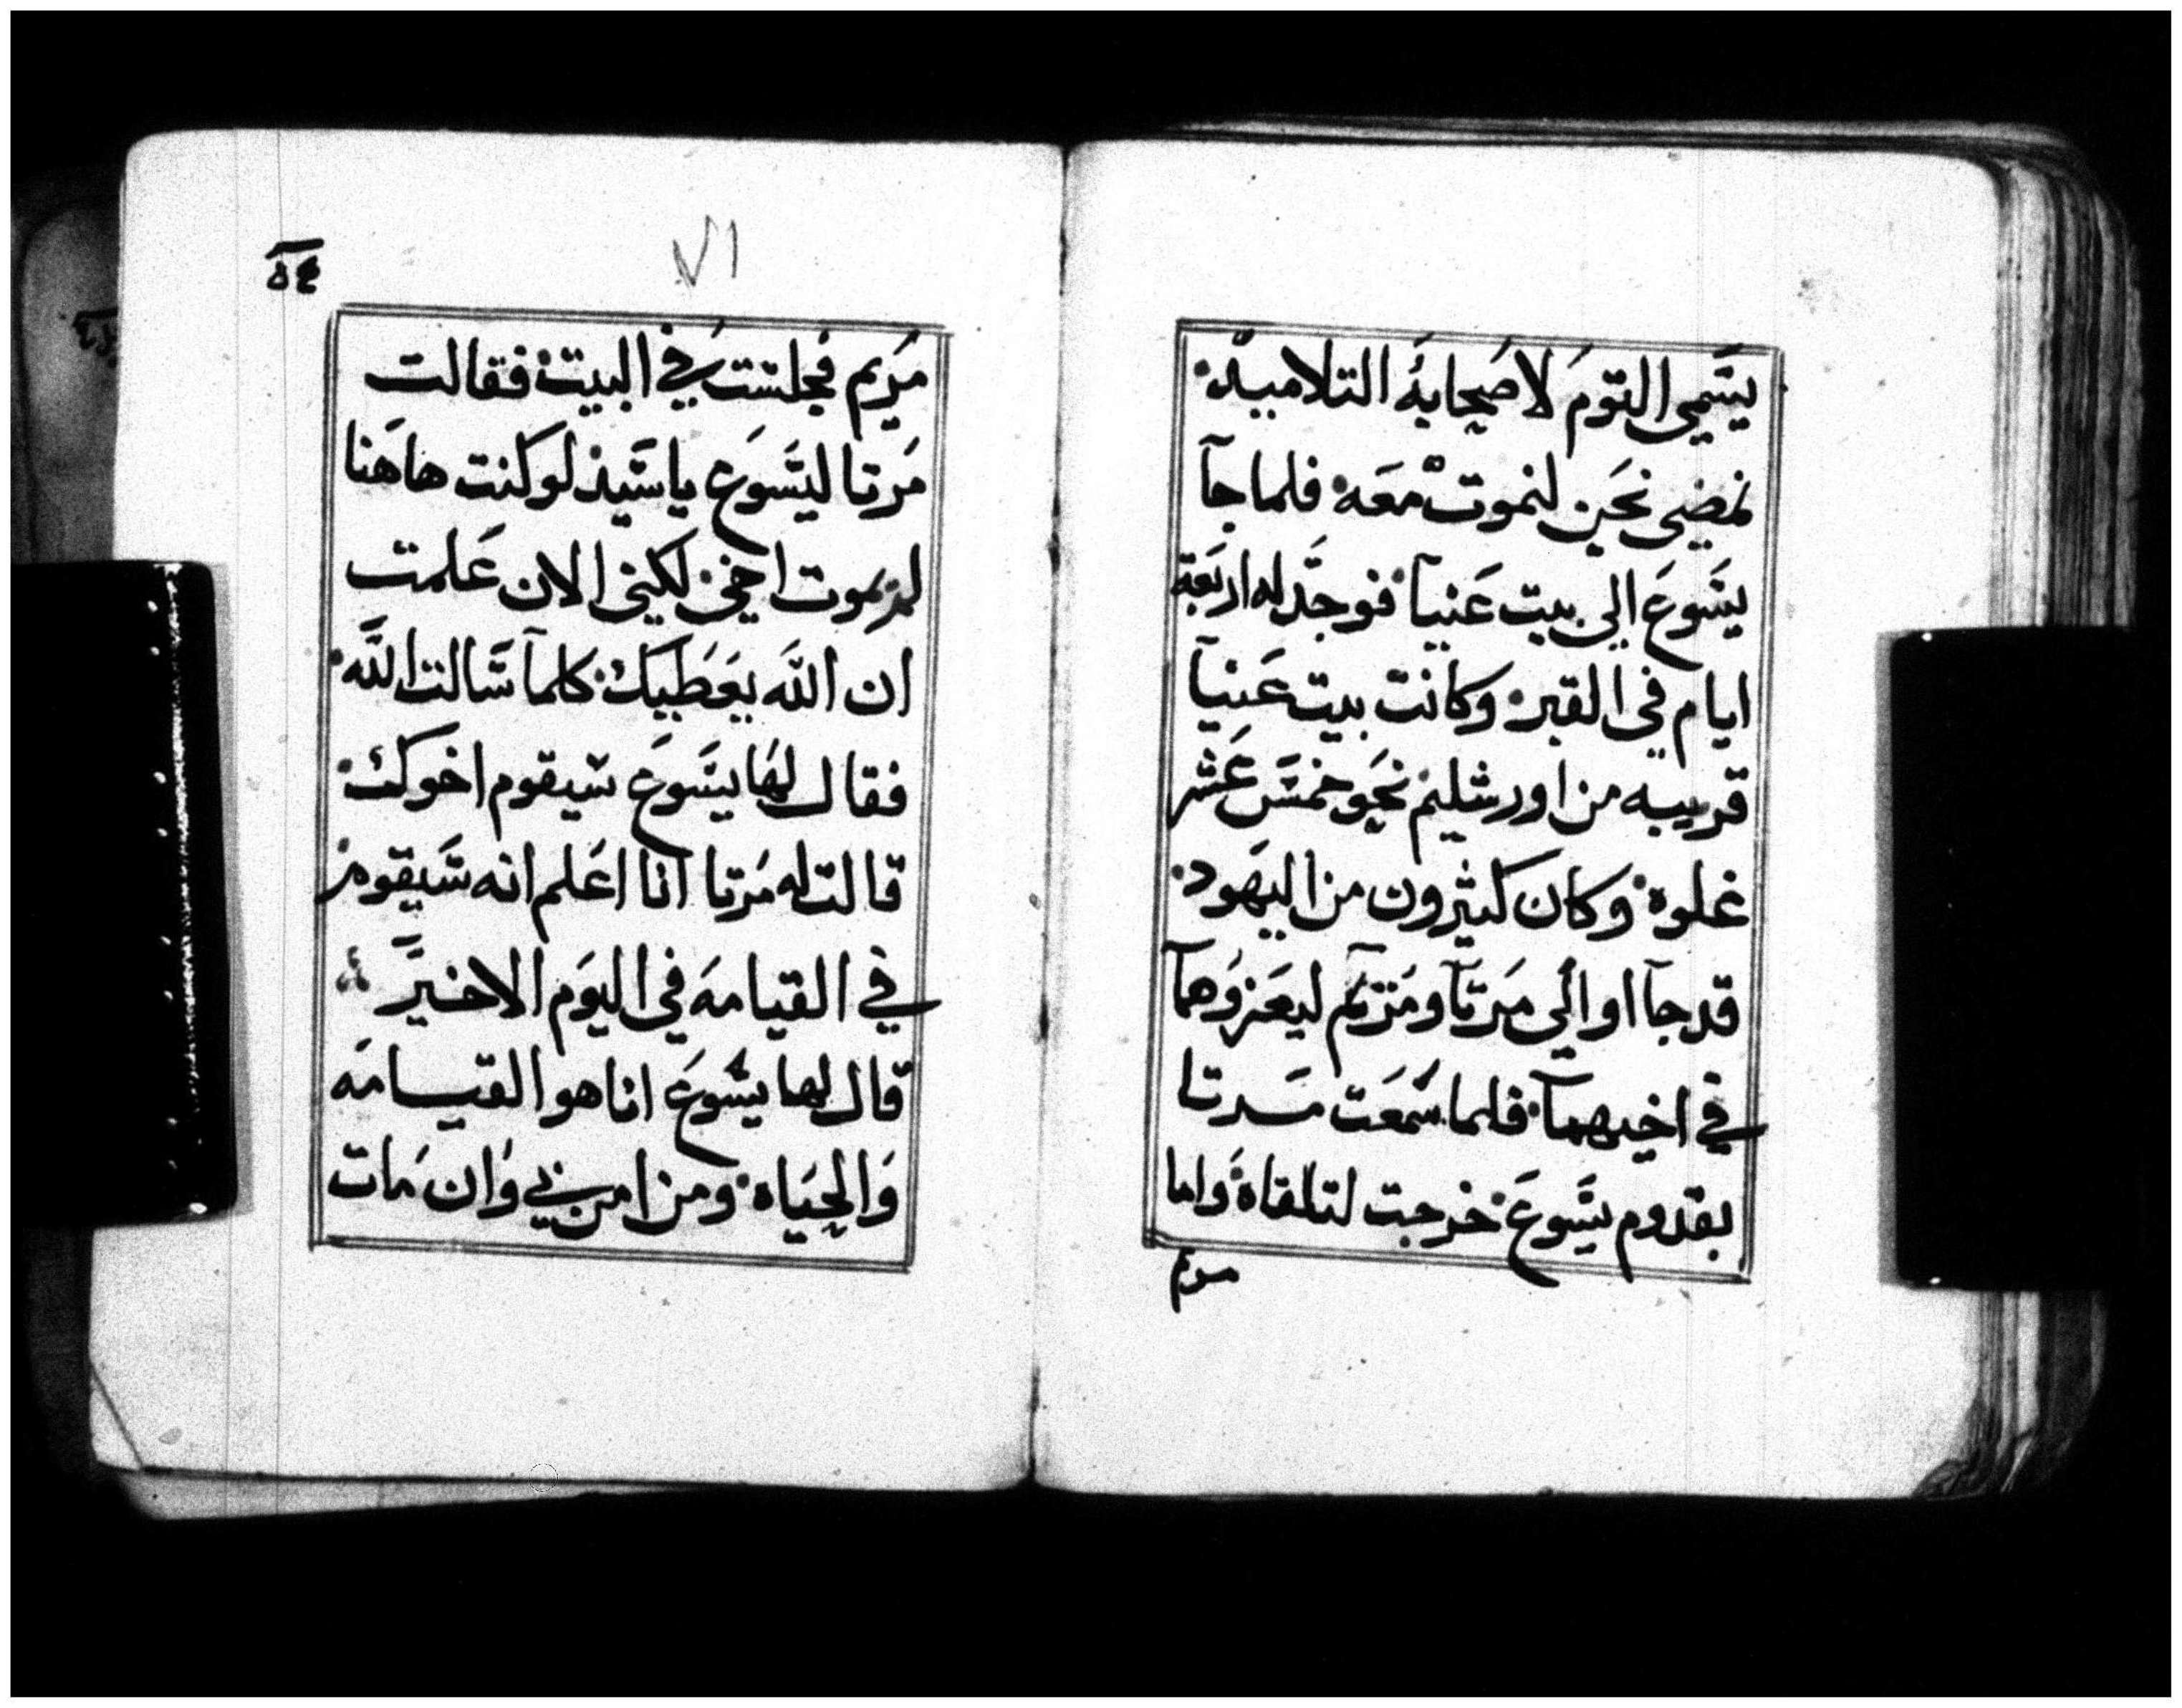 يسَّمي التوَم لاصَحابهُ التلاميد
نمضي نحَن لنموت معَه فلما جآ
يسَّوعَ الي بيت عَنيآ فوجدَ له اربَعة
ايام في القبر وكانت بيت عَنيآ
قريبه من اورشليم نحَو خمسَ عَشر
غلوة وكان كثيرون من اليهَود
قد جآاوا الي مَرتآ ومَريم ليعَزوَهمآ
في اخيهمآ فلما سَمعَت مَرتا
بقدوم يسَّوعَ خرجت لتلقاهَ واما
مريم
٧١
٥٤
مَريم فجلسَت في البيت فقالت
مَرتا ليسَّوعَ يا سَّيد لو كنت هاهَنا
لم يموت اخي لكني الان عَلمت
ان اللَّه يعَطيك كلمآ سَّالت اللَّه
فقال لهَا يسَّوعَ سَيقوم اخوك
قالت له مَرتا انا اعَلم انه سَّيقوم
في القيامهَ في اليوَم الاخيرَ
قال لهما يسَّوعَ انا هو القيامهَ
وَالحيَاه ومن امن بي وَان مَات